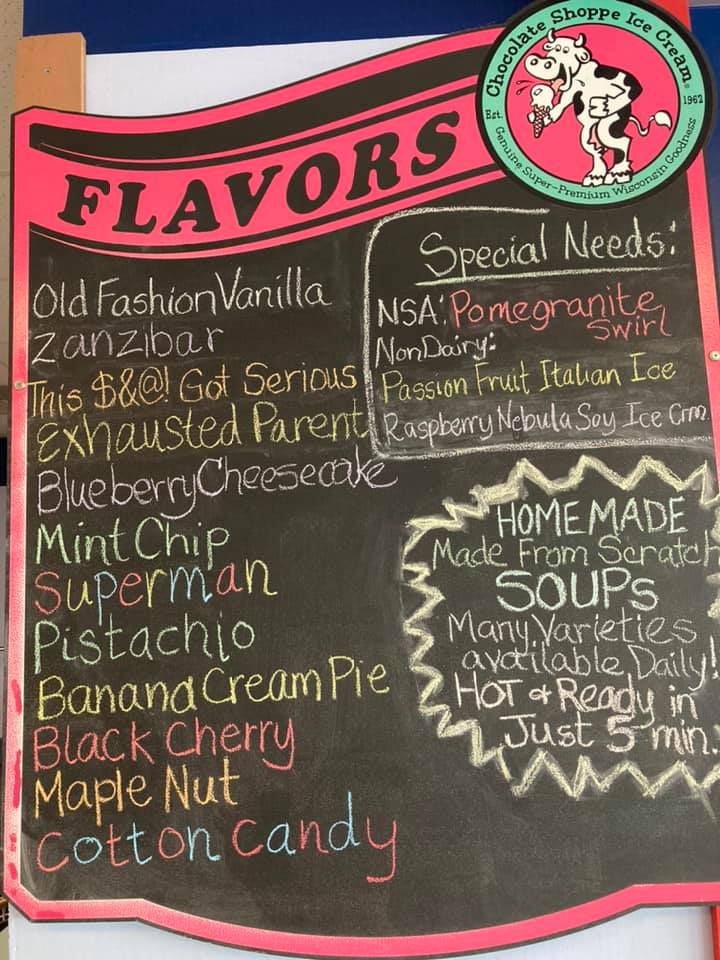 Chocolate Shoppe Ice Cream®
Est. 1962
Genuine Super-Premium Wisconsin Goodness
FLAVORS
Old Fashion Vanilla
Zanzibar
This $&@! Got Serious
Exhausted Parent
Blueberry Cheesecake
Mint Chip
Superman
Pistachio
Banana Cream Pie
Black Cherry
Maple Nut
Cotton Candy
Special Needs:
NSA: Pomegranite
Swirl
Non Dairy:
Passion Fruit Italian Ice
Raspberry Nebula Soy Ice Crm
HOMEMADE
Made From Scratch
SOUPs
Many Varieties
available Daily!
HOT & Ready in
Just 5 min.